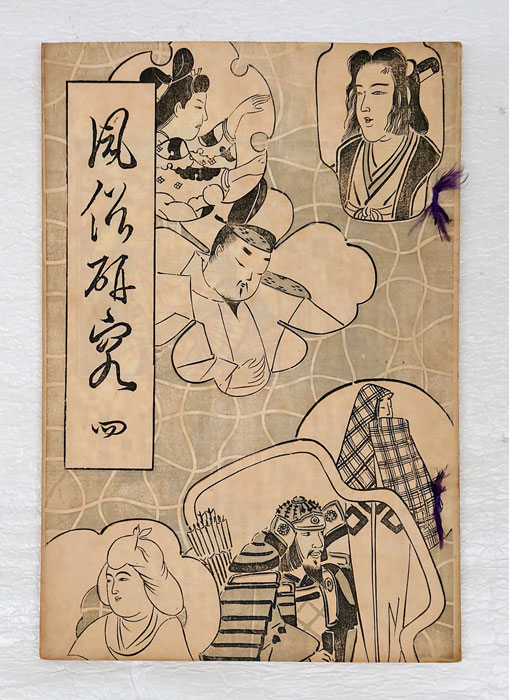 風俗研究 四